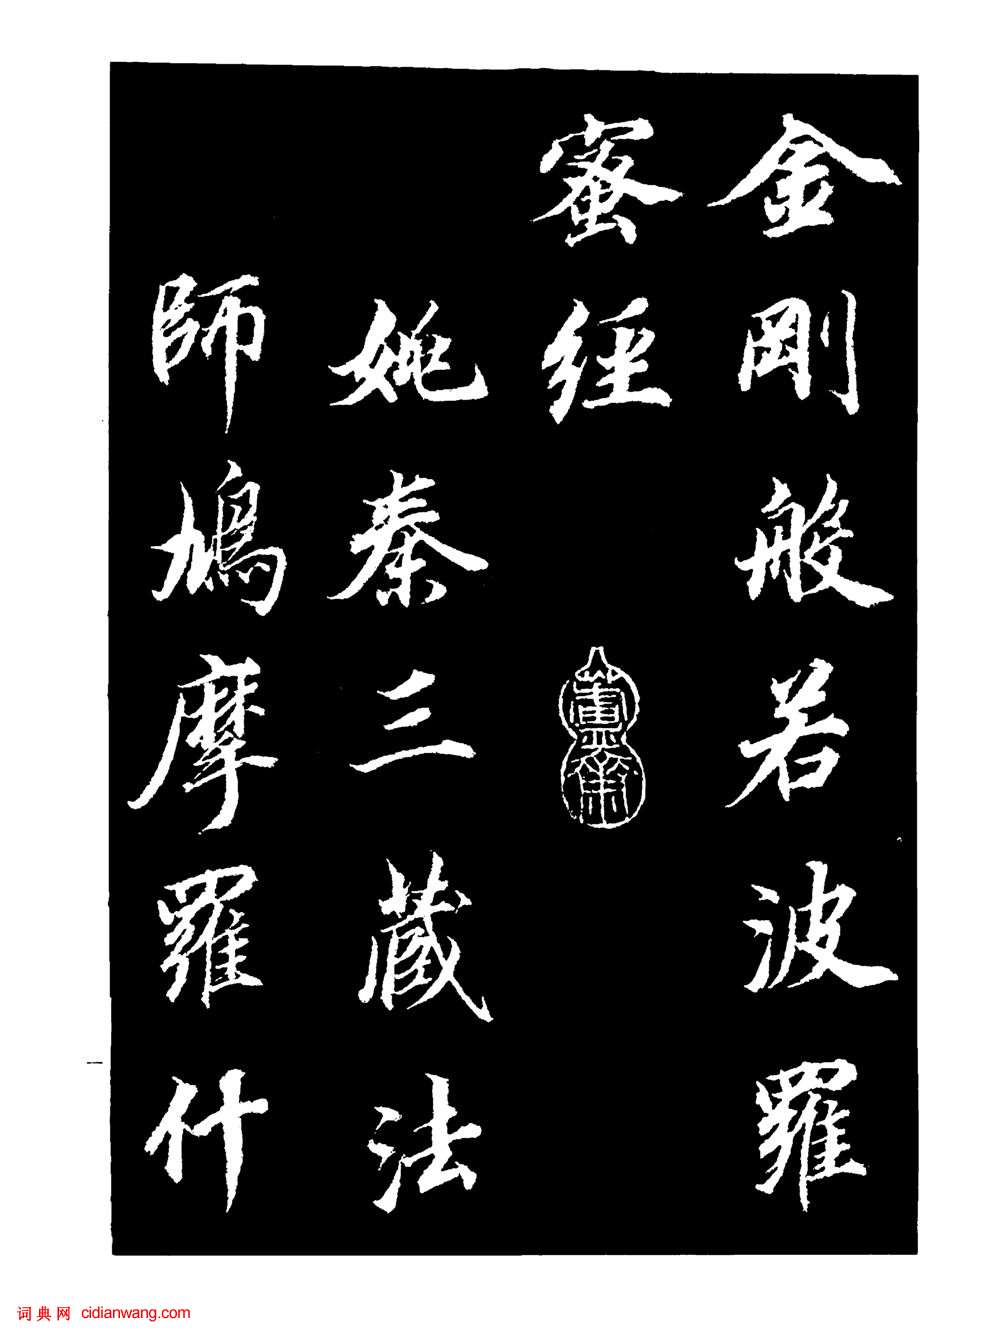 金剛般若波羅
蜜經
姚秦三藏法
師鳩摩羅什
一
词典网 cidianwang.com